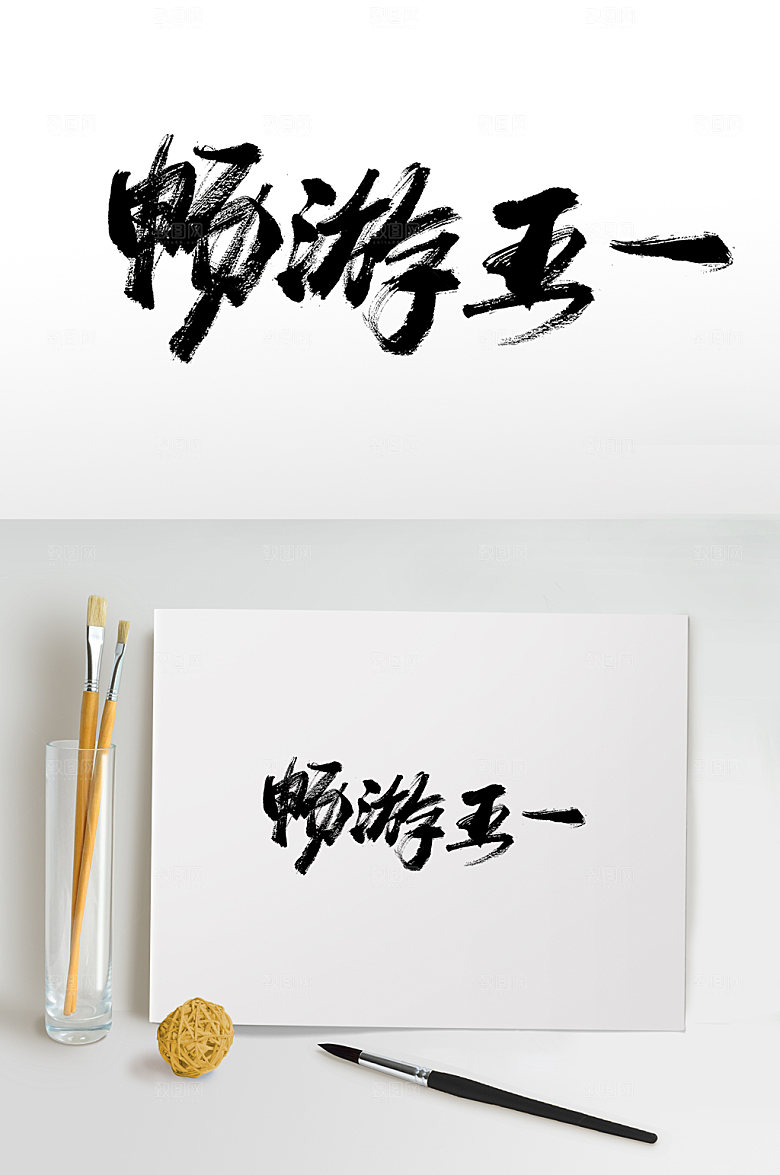 畅游五一
畅游五一